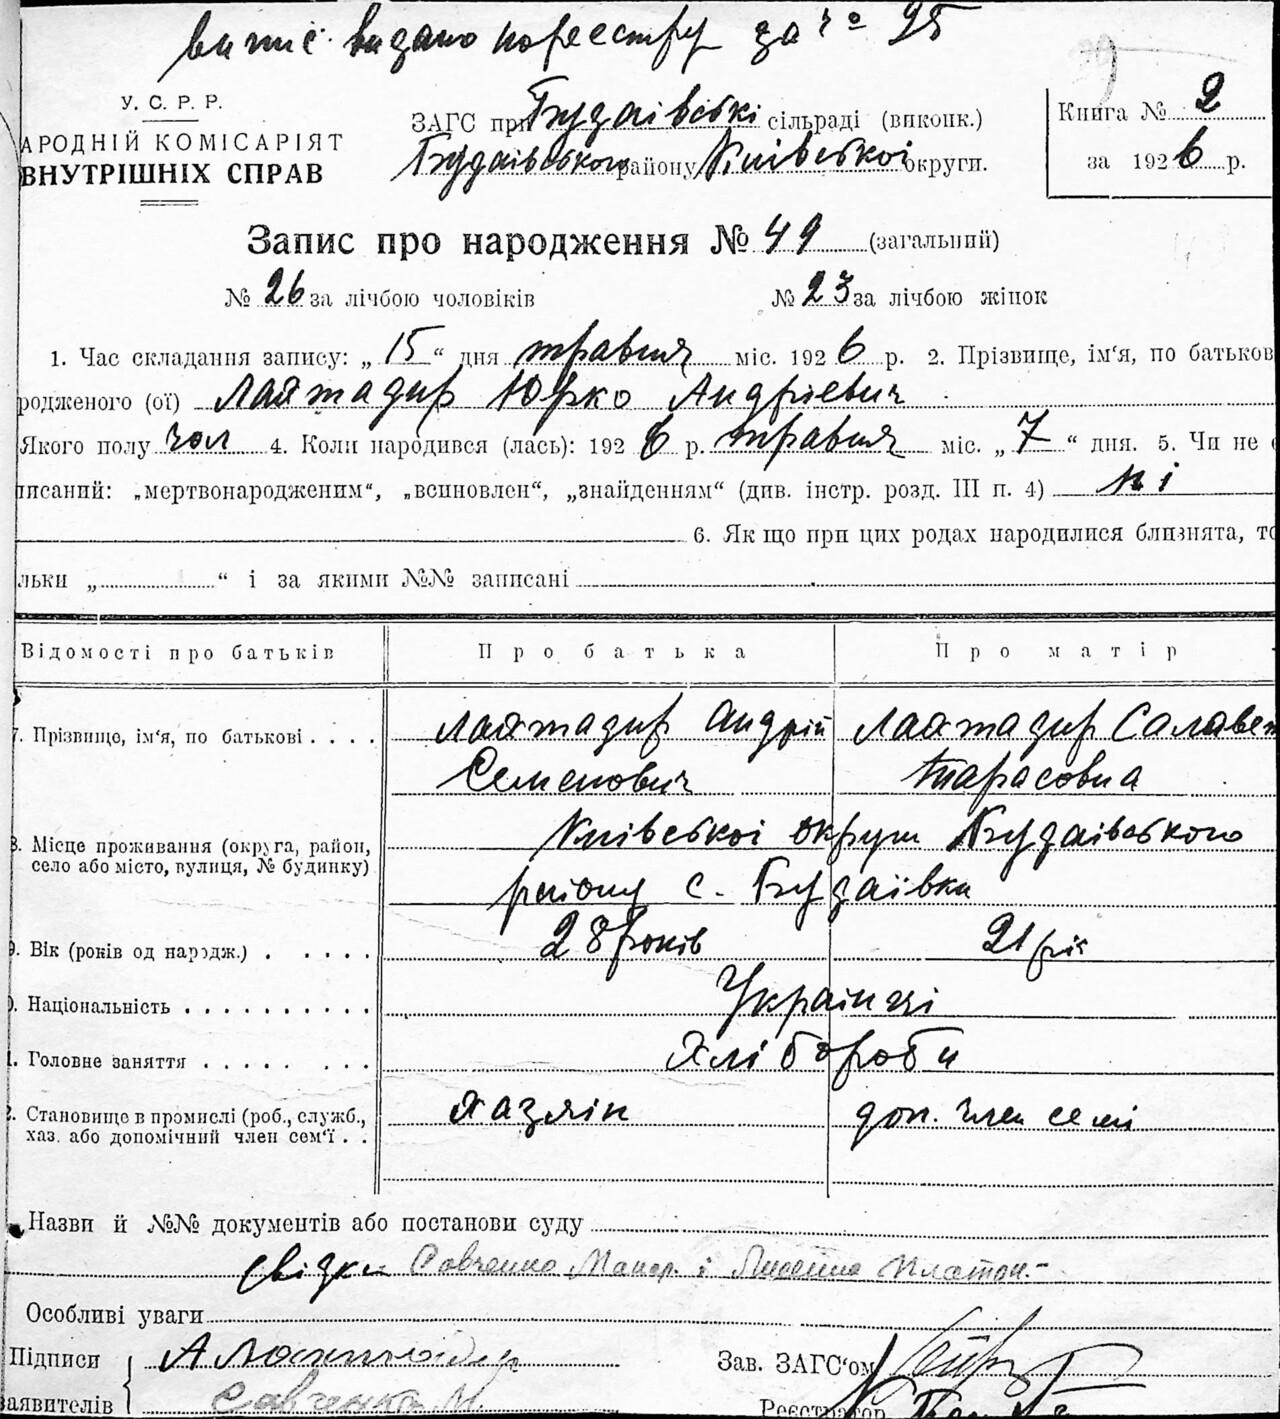 випис видано по реестру за № 95
У. С. Р. Р.
АРОДНІЙ КОМІСАРІЯТ
ВНУТРІШНІХ СПРАВ
ЗАГС при Будаівські сільраді (виконк.)
Будаівського району Київськоі округи.
Книга № 2
за 1926 р.
Запис про народження № 49 (загальний)
№ 26 за лічбою чоловіків № 23 за лічбою жінок
1. Час складання запису: „15“ дня травня міс. 1926 р. 2. Прізвище, ім‘я, по батьков
родженого (ої) Лаятадир Юрко Андріевич
Якого полу чол 4. Коли народився (лась): 1926 р. травня міс. „7“ дня. 5. Чи не
писаний: „мертвонародженим“, „всиновлен“, „знайденням“ (див. інстр. розд. III п. 4) ні
6. Як що при цих родах народилися близнята, то
льки „ “ і за якими №№ записані
Відомості про батьків Про батька Про матір
7. Прізвище, ім‘я, по батькові . . . . Лаятадир Андрій Лаятадир Салавет
Семенович Тарасовна
8. Місце проживання (округа, район, село або місто, вулиця, № будинку) Київськоі округи Будаівського
району с. Будаївки
9. Вік (років од народж.) . . . . . 28 років 21 рік
0. Національність . . . . . . . . . . Украінці
1. Головне заняття . . . . . . . . Хлібороби
2. Становище в промислі (роб., служб., хаз. або допомічний член сем‘ї . . Хазяін доп. член семі
Назви й №№ документів або постанови суду
свідки Савченко Макар. і Лисенко Платон.-
Особливі уваги
Підписи А Лаятадир Зав. ЗАГС‘ом
заявителів Савченко М. Реєстратор